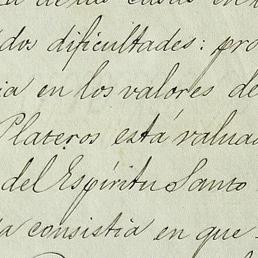 dos dificultades: pro
ia en los valores de
Plateros está valuad
del Espíritu Santo
a consistia en que